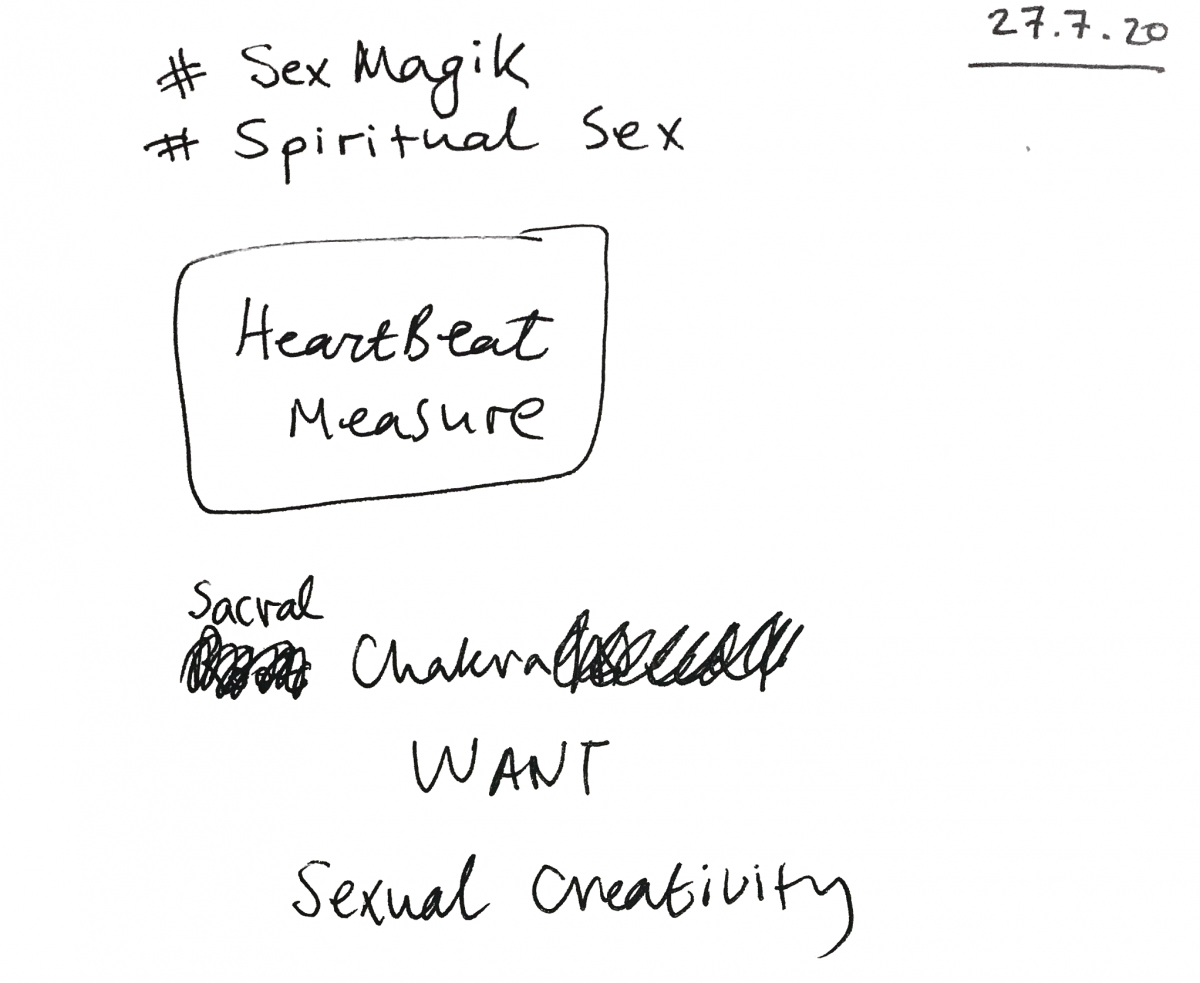 27.7.20
# Sex Magik
# Spiritual Sex
HeartBeat
Measure
Sacral
Chakra
WANT
Sexual Creativity